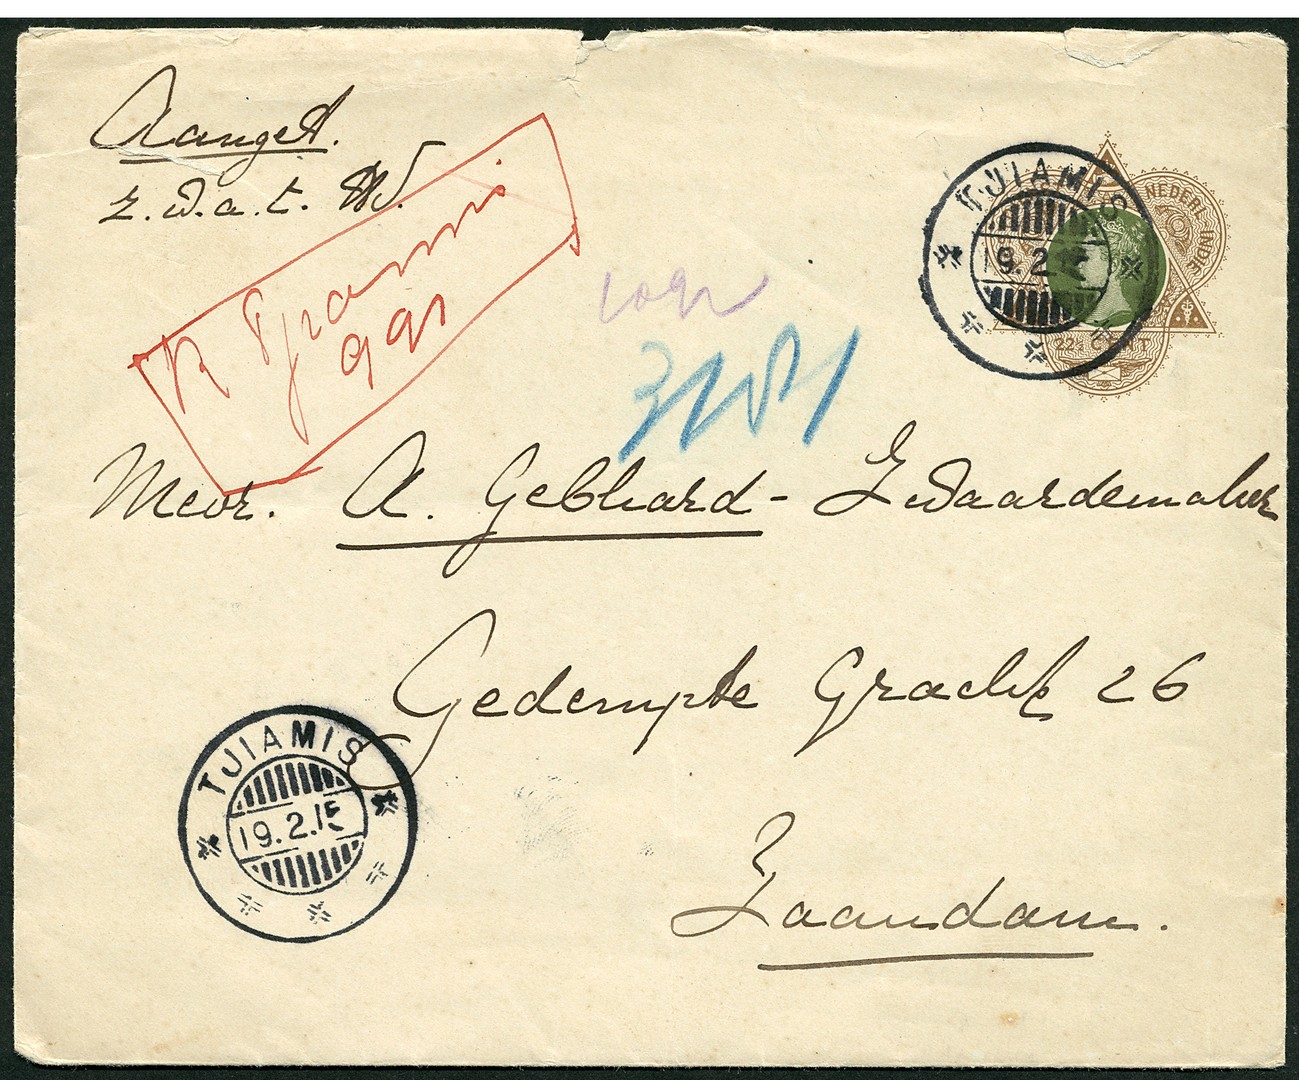 Aanget.
z.w.a.t.
R Tjiamis
991
TJIAMIS
19.2.15
NEDERL. INDIE
22½ CENT
Mevr. A. Gebhard - Zwaardemaker
Gedempte Gracht 26
Zaandam.
TJIAMIS
19.2.15